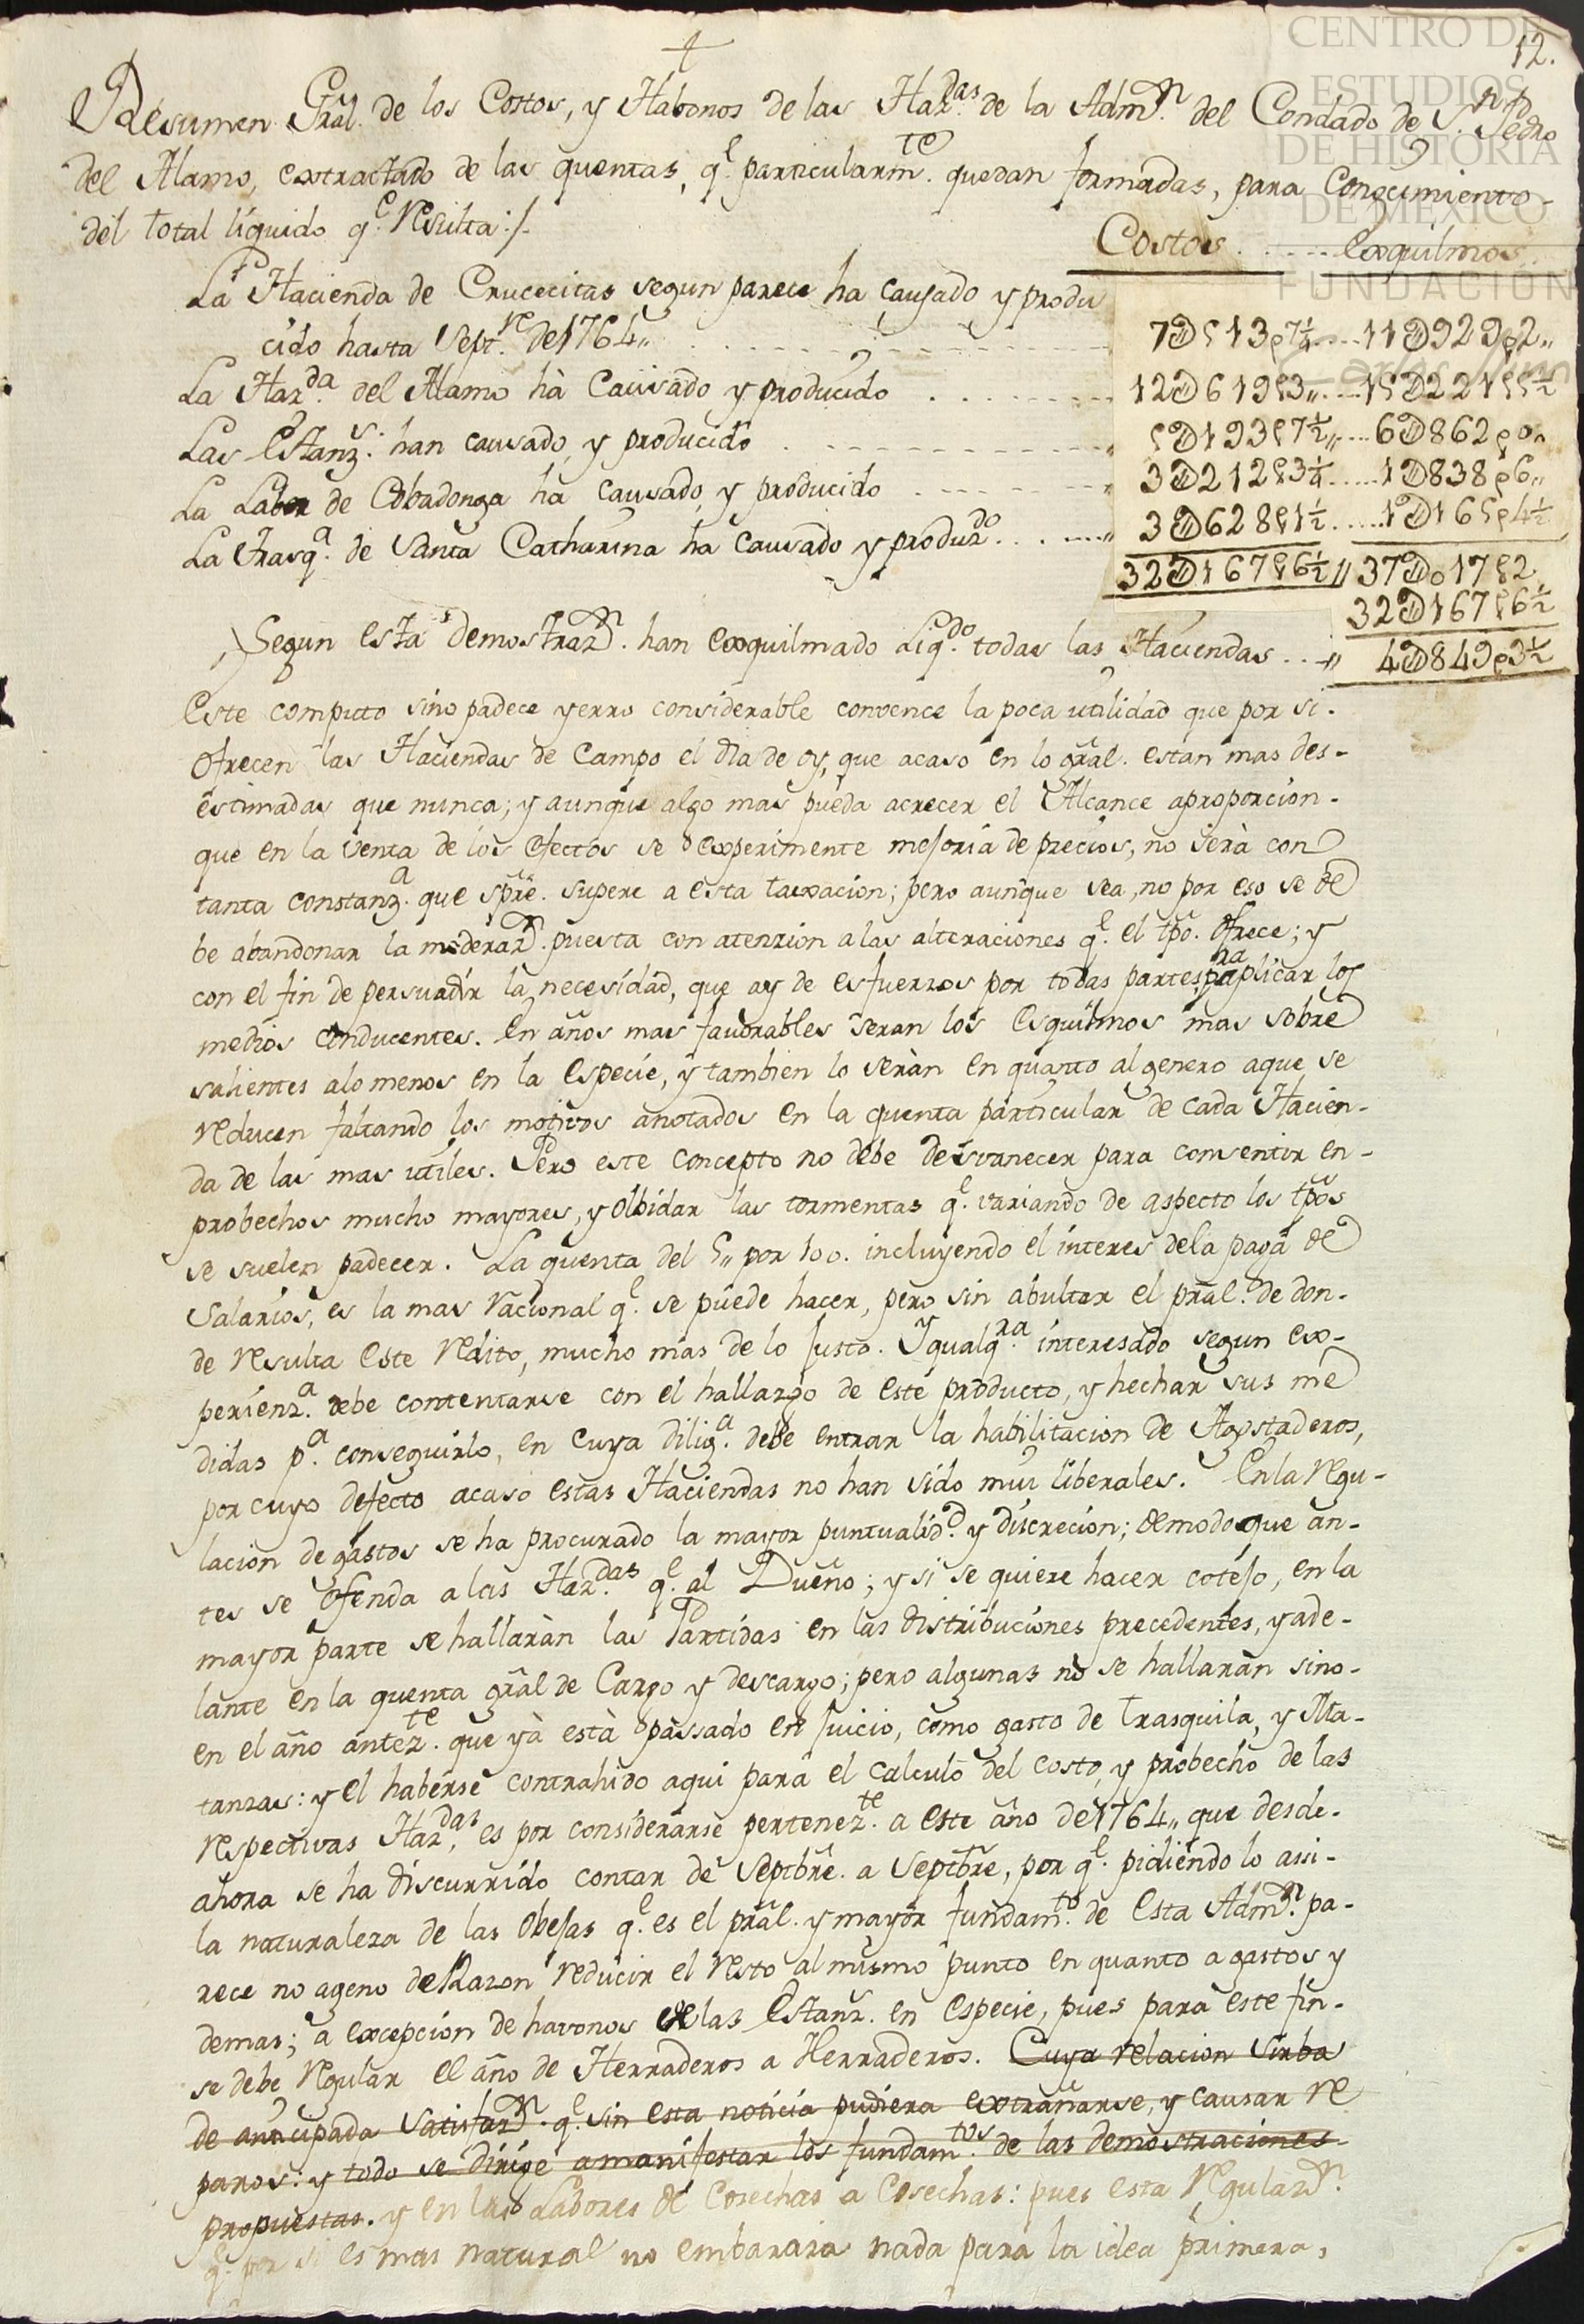 CENTRO DE
ESTUDIOS
DE HISTORIA
DE MEXICO
FUNDACIÓN
12.
Resumen Grãl. de los Costos, y Habonos de las Hazdas. de la Admn. del Condado de Sn. Pedro
del Alamo, extractado de las quentas, qe. particularmte. quedan formadas, para conocimiento
del total líquido qe. resulta:/.
Costos . . . . . Exquilmos.
La Hacienda de Crucecitas segun parece ha causado y produ
cido hasta Septre. de 1764,, . . . 7@513ps7¼ . . . . 11@929ps2,,
La Hazda. del Alamo hà Causado y producido . . . 12@619ps3,, . . . 15@221ps5½
Las Estanzs. han causado, y producido . . . 5@193ps7½,, . . . 6@862ps0,,
La Labor de Cobadonga ha causado, y producido . . . 3@212ps3¼ . . . . 1@838ps6,,
La Trasqa. de Santa Catharina ha causado y produzdo. . . . 3@628ps1½ . . . . 1@165ps4½
32@167ps6½ // 37@017ps2
32@167ps6½
Segun esta demostrazn. han exquilmado Liqdo. todas las Haciendas . . ,, 4@849ps3½
Este computto sino padece yerro considerable convence la poca utilidad que por si-
ofrecen las Haciendas de Campo el dia de oy, que acaso en lo grãl. estan mas des-
estimadas que nunca; y aunque algo mas pueda acrecer el Alcance aproporcion-
que en la venta de los efectos se experimente mejoria de precios, no serà con
tanta constanza. que spre. supere a esta taxacion; pero aunque sea, no por eso se de
be abandonar la moderazn. puesta con atenzion a las alteraciones qe. el tpo. ofrece; y
con el fin de persuadir la necesidad, que ay de esfuerzos por todas partes pra aplicar los
medios conducentes. En años mas favorables seran los esquilmos mas sobre
salientes alo menos en la especie, y tambien lo seràn en quanto al genero aque se
reducen faltando los motivos anotados en la quenta particular de cada Hacien-
da de las mas utiles. Pero este concepto no debe desvanecer para consentir en-
probechos mucho mayores, y olbidar las tormentas qe. variando de aspecto los tpos
se suelen padecer. La quenta del 5,, por 100. incluyendo el interes dela paga de
Salarios, es la mas racional qe. se puede hacer, pero sin abultar el pral. de don-
de resulta este redito, mucho mas de lo justo. Y qualqra. interesado segun ex-
perienza. debe contentarse con el hallazgo de este producto, y hechar sus me
didas pa. conseguirlo, en cuya diliga. debe entrar la habilitacion de Agostaderos,
por cuyo defecto acaso estas Haciendas no han sido mui liberales. En la regu-
lacion de gastos se ha procurado la mayor puntualidd. y discrecion; de modo que an-
tes se ofenda a las Hazdas. qe. al Dueño; y si se quiere hacer cotejo, en la
mayor parte se hallaràn las Partidas en las distribuciones precedentes, y ade-
lante en la quenta grãl de Cargo y descargo; pero algunas no se hallaràn sino-
en el año antezte. que yà està passado en juicio, como gasto de trasquila, y Ma-
tanzas: y el haberse contrahido aqui para el calculo del costo, y probecho de las
respectivas Hazdas, es por considerarse pertenezte. a este año de 1764,, que desde-
ahora se ha discurrido contar de Septbre. a Septbre, por qe. pidiendo lo assi-
la naturaleza de las Obejas qe. es el pral. y mayor fundamto. de esta Admn. pa-
rece no ageno de Razon reducir el resto al mismo punto en quanto a gastos y
demas; a excepcion de havonos de las Estanz. en especie, pues para este fin-
se debe regular el año de Herraderos a Herraderos. Cuya relacion sirba
de anticipada satisfazn. qe. sin esta noticia pudiera extrañarse, y causar re
paros: y todo se dirige a manifestar los fundamtos. de las demostraciones
propuestas. y en las Labores de Cosechas a Cosechas: pues esta regulazn.
qe. por si es mas natural no embaraza nada para la idea primera,